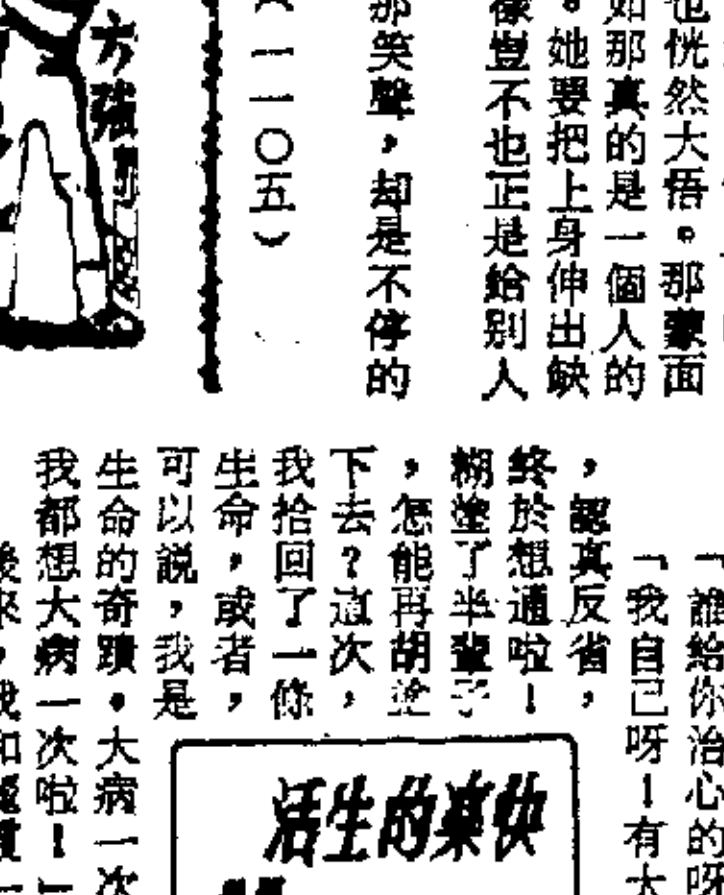 也恍然大悟。那蒙面
如那真的是一個人的
。她要把上身伸出缺
樣豈不也正是給別人
那笑聲,却是不停的
(一一〇五)
方強
「誰給你治心的呀
「我自己呀!有大
,認真反省,
終於想通啦!
糊塗了半輩子
,怎能再胡塗
下去?這次,
我拾回了一條
生命,或者,
可以説,我是
生命的奇蹟。大病一次
我都想大病一次啦!」
後來,我和
快樂的生活